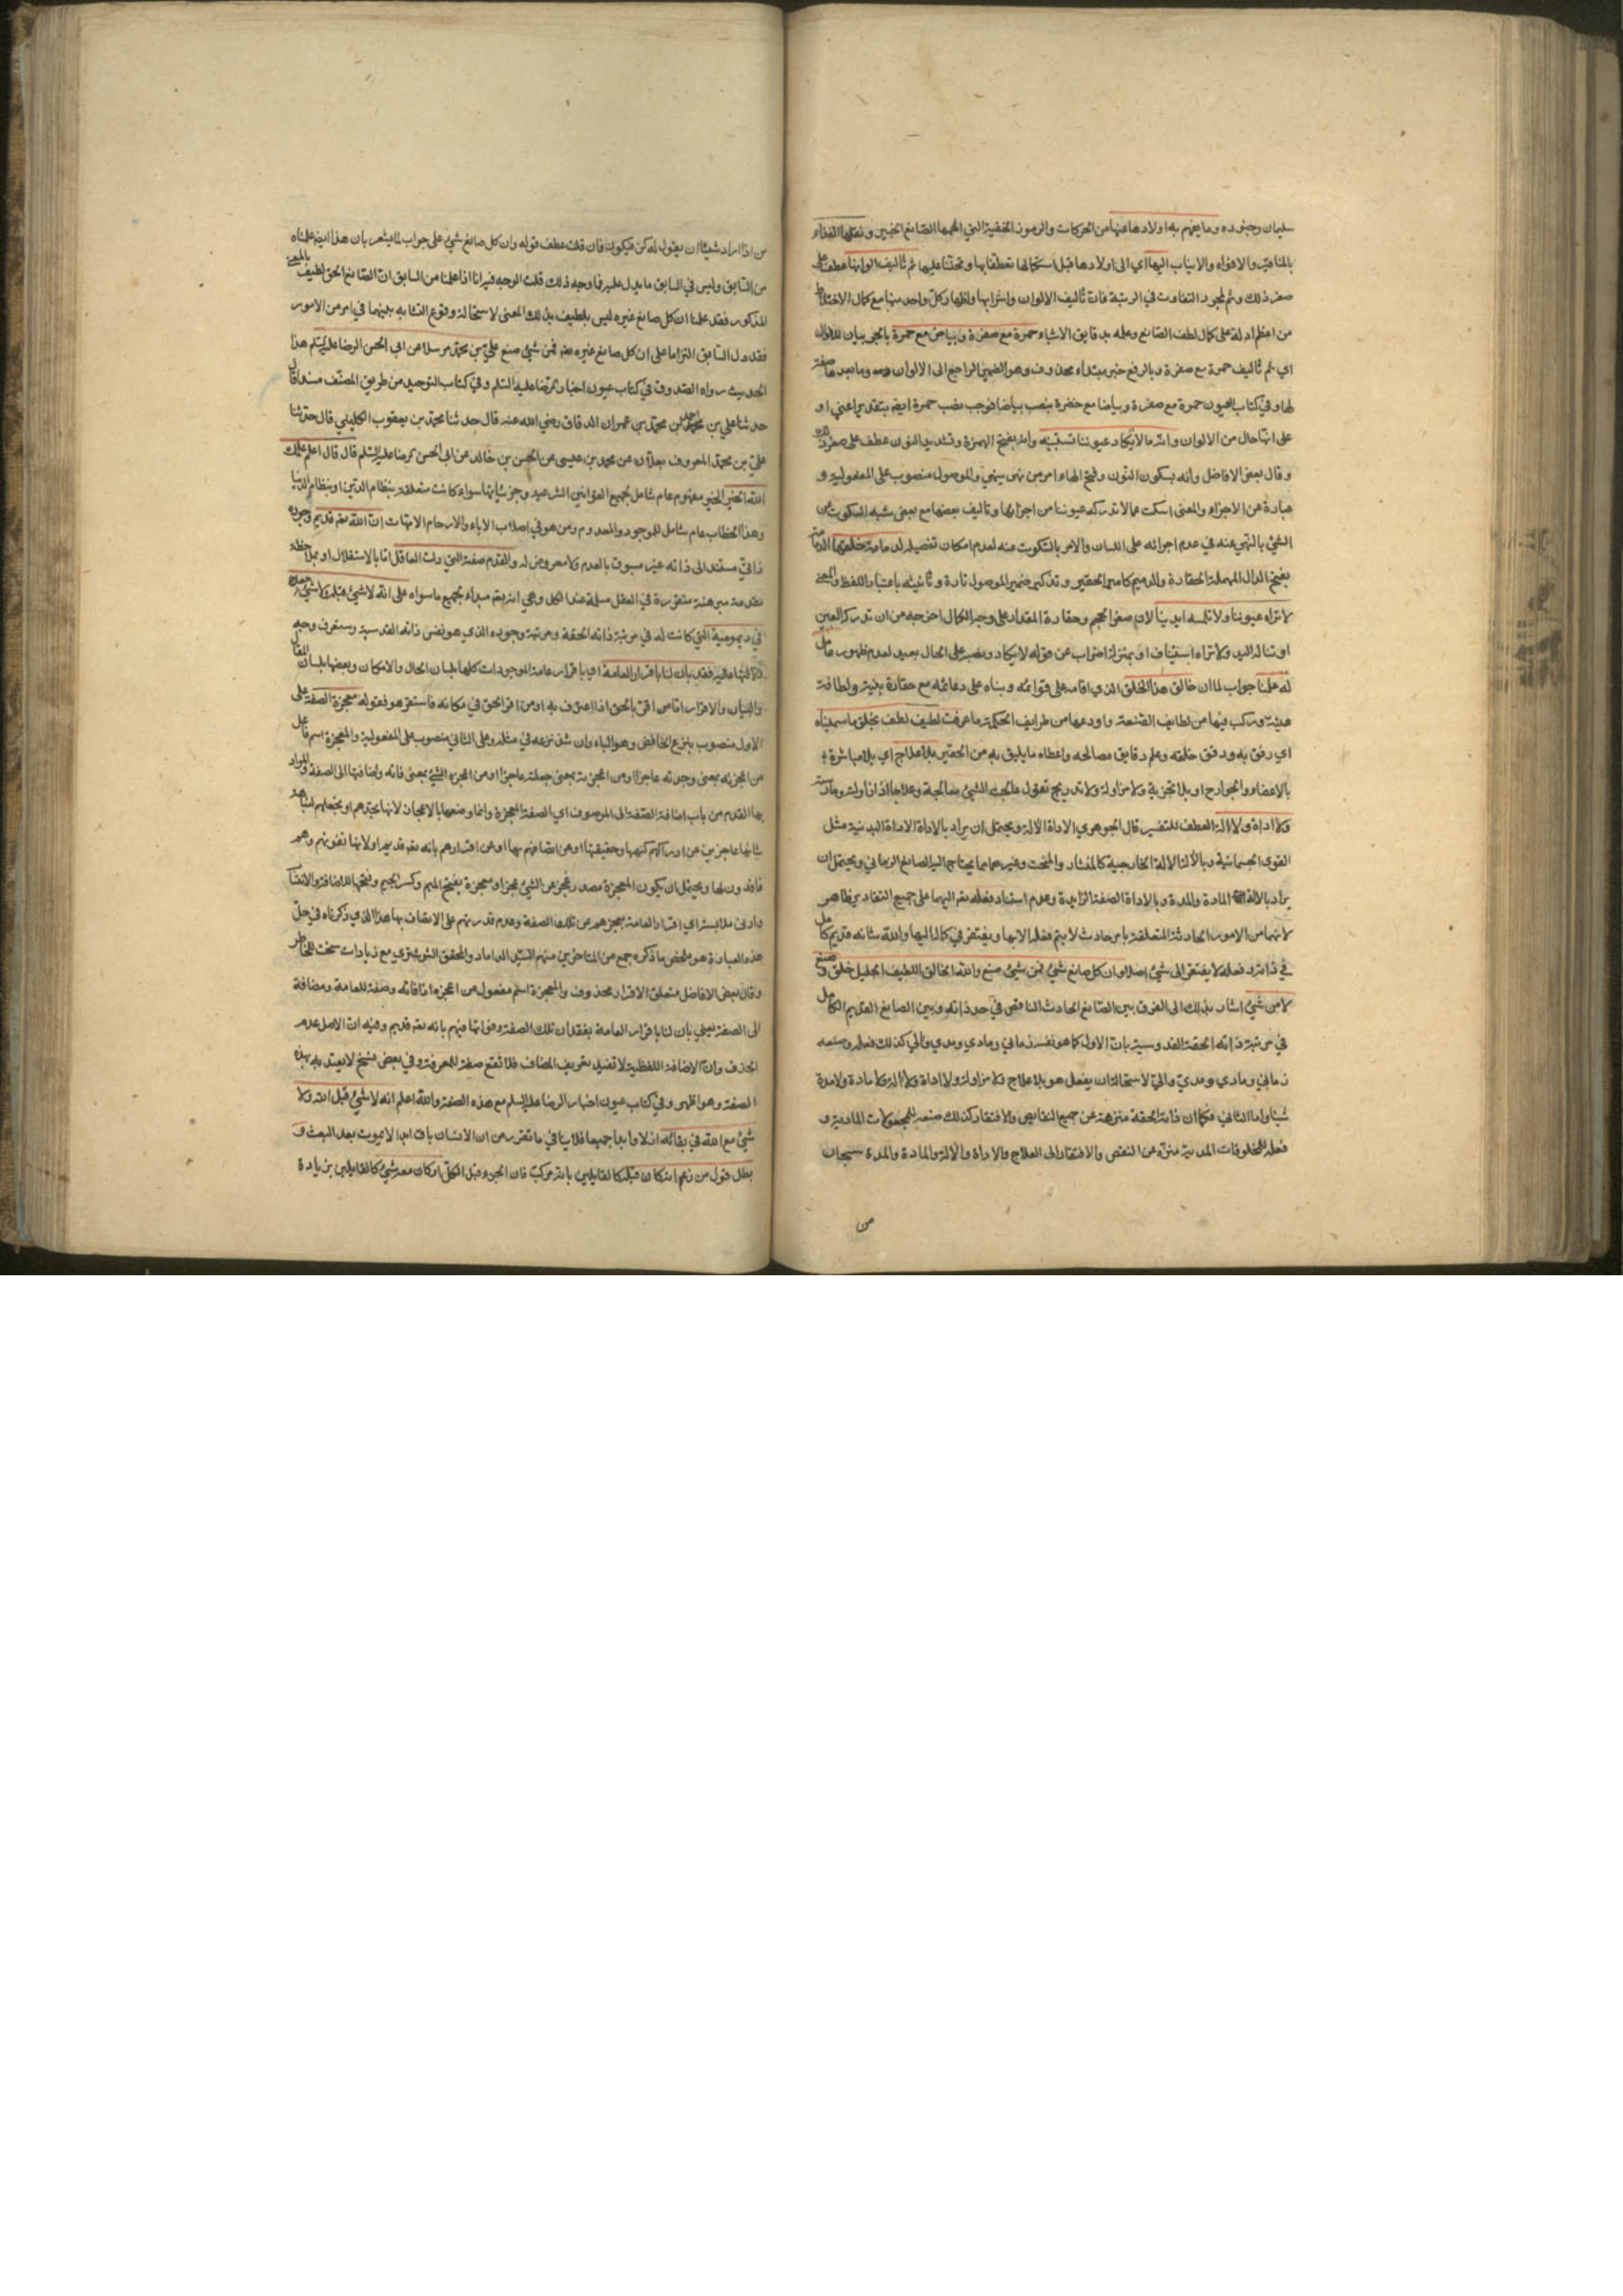 سليمان وجنوده وما يفهم به اولادها عنها من الحركات والرموز الخفية التي الهمها الصانع الخبير ونقلها الغذاء
بالمناقير والافواه والانياب اليها اي الى اولادها قبل استكمالها تعطفا بها وتحننا عليها ثم تاليف الوانها عطف على
صغر ذلك وثم لمجرد التفاوت في الرتبة فان تاليف الالوان وامتزاجها وكل واحد منها مع كمال الاختلاط
من اعظم ادلة على كمال لطف الصانع وعلمه بدقايق الاشياء حمرة مع صفرة وبياض مع حمرة بالجر بيان للالوان
اي ثم تاليف حمرة مع صفرة وبالرفع خبر مبتداء محذوف وهو الضمير الراجع الى الالوان وما بعد مع صفة
لها وفي كتاب العيون حمرة مع صفرة وبياضا مع خضرة بنصب بياضا فوجب نصب حمرة ايضا بتقدير اعني او
على انها حال من الالوان وانه ما لا يكاد عيوننا تستبينه وانه بفتح الهمزة وتشديد النون عطف على صغر ذلك
وقال بعض الافاضل وانه بسكون النون وفتح الهاء امر من نهى ينهى والموصول منصوب على المفعولية و
عبارة عن الاجزاء والمعنى اسكت عما لا تدركه عيوننا من اجزايها وتاليف بعضها مع بعض شبه السكوت عن
الشيء بالنهي عنه في عدم اجرائه على اللسان والامر بالسكوت منه لعدم امكان تفصيله لدمامة خلقها الدمامة
بفتح الدال المهملة الحقارة والدميم كامير الحقير وتذكير ضمير الموصول تارة وتانيثه باعتبار اللفظ والمعنى
لا تراه عيوننا ولا تلمسه ايدينا لان صغر الحجم وحقارة المقدار على وجه الكمال اخرجه من ان تدركه العين
او تناله اليد ولا تراه استيناف او بمنزلة اضراب عن قوله لا يكاد ونصبه على الحال بعيد لعدم ظهور عامل
له علمنا جواب لما ان خالق هذا الخلق الذي اقامه على قوائمه وبناه على دعائمه مع حقارة بنيته ولطافة
هيئته وركب فيها من لطايف الصنعة واودعها من طرايف الحكمة ما عرفت لطيف لطف بخلق ما سميناه
اي رفق به ودقق خلقه وعلم دقايق مصالحه واعطاه ما يليق به من الحقير بلا علاج اي بلا مباشرة
بالاعضاء والجوارح او بلا تجربة ولا مزاولة ولا تدريج تقول عالجت الشيء معالجة وعلاجا اذا زاولته ومارسته
ولا اداة ولا الة العطف للتفسير قال الجوهري الاداة الالة ويحتمل ان يراد بالاداة الاداة البدنية مثل
القوى الجسمانية وبالالة الالة الخارجية كالمنشار والمنحت وغيرهما مما يحتاج اليه الصانع الزماني ويحتمل ان
يراد بالالة المادة والمدة وبالاداة الصفة الزايدة وعدم استناد فعله تعم اليهما على جميع التقادير ظاهر
لانهما من الامور الحادثة المتعلقة بامر حادث لا يتم فعله الا بها ويفتقر في كماله اليها والله شانه قديم كامل
في ذاته وفعله لا يفتقر الى شيء اصلا وان كل صانع شيء فمن شيء صنع والله الخالق اللطيف الجليل خلق وصنع
لا من شيء اشار بذلك الى الفرق بين الصانع الحادث الناقص في حد ذاته وبين الصانع القديم الكامل
في مرتبة ذاته الحقة القدوسية بان الاول كما هو نفسه زماني ومادي ومدي والي كذلك فعله وصنعه
زماني ومادي ومدي والي لاستحالة ان يفعل هو بلا علاج ولا مزاولة ولا اداة ولا الة ولا مادة ولا مدة
شيئا واما الثاني فكما ان ذاته الحقة منزهة عن جميع النقايص والافتقار كذلك صنعه للمجعولات المادية و
فعله للمخلوقات المدية منزه عن النقص والافتقار الى العلاج والاداة والالة والمادة والمدة سبحان
من
من اذا اراد شيئا ان يقول له كن فيكون فان قلت عطف قوله وان كل صانع شيء على جواب لما يشعر بان هذا ايضا علمناه
من السابق وليس في السابق ما يدل عليه فما وجه ذلك قلت الوجه فيه انا اذا علمنا من السابق ان الصانع الحق لطيف بالمعنى
المذكور فقد علمنا ان كل صانع غيره ليس بلطيف بذلك المعنى لاستحالة وقوع التشابه بينهما في امر من الامور
فقد دل السابق التزاما على ان كل صانع غيره تعم فمن شيء صنع علي بن محمد مرسلا عن ابي الحسن الرضا عليه السلم هذا
الحديث رواه الصدوق في كتاب عيون اخبار الرضا عليه السلم وفي كتاب التوحيد من طريق المصنف مسندا قال
حدثنا علي بن احمد بن محمد بن عمران الدقاق رضي الله عنه قال حدثنا محمد بن يعقوب الكليني قال حدثنا
علي بن محمد المعروف بعلان عن محمد بن عيسى عن الحسن بن خالد عن ابي الحسن الرضا عليه السلم قال قال اعلم علمك
الله الخير الخير مفهوم عام شامل لجميع القوانين الشرعية وجزئياتها سواء كانت متعلقة بنظام الدين او بنظام الدنيا
وهذا الخطاب عام شامل للموجود والمعدوم ومن هو في اصلاب الاباء والارحام الامهات ان الله تعم قديم وجوده
ذاتي مستند الى ذاته غير مسبوق بالعدم ولا معروض له والقدم صفته التي دلت العاقل اما بالاستقلال او بملاحظة
مقدمة مبرهنة متقررة في العقل مسلمة عند الكل وهي انه تعم مبداء لجميع ما سواه على انه لا شيء قبله ولا شيء معه
في ديموميته التي كانت له في مرتبة ذاته الحقة ومرتبة وجوده الذي هو نفس ذاته القدسية وستعرف وجه
دلالتها عليه فقد بان لنا باقرار العامة اي باقرار عامة الموجودات كلها بلسان الحال والامكان وبعضها بلسان المقال
والبيان والاقرار اما من اقر بالحق اذا اعترف به او من اقر الحق في مكانه فاستقر هو فقوله معجزة الصفة على
الاول منصوب بنزع الخافض وهو الباء وان شذ نزعه في مثله وعلى الثاني منصوب على المفعولية والمعجزة اسم فاعل
من اعجزته بمعنى وجدته عاجزا او من اعجزته بمعنى جعلته عاجزا او من اعجزه الشيء بمعنى فاته واضافتها الى الصفة والمراد
بها القدم من باب اضافة الصفة الى الموصوف اي الصفة المعجزة وانما وصفها بالاعجاز لانها تجدهم او تجعلهم لنباهة
شانها عاجزين عن ادراكهم كنهها وحقيقتها او عن اتصافهم بها او عن انكارهم بانه تعم قديم او لانها تفوتهم وهم
فاقدون لها ويحتمل ان يكون المعجزة مصدر عجز عن الشيء عجزا ومعجزة بفتح الميم وكسر الجيم وفتحها للاضافة والانتساب
بادنى ملابسة اي اقرار العامة بعجزهم عن تلك الصفة وعدم قدرتهم على الاتصاف بها هذا الذي ذكرناه في حل
هذه العبارة هو ملخص ما ذكره جمع من المتاخرين منهم السيد الداماد والمحقق الشوشتري مع زيادات سنحت للخاطر
وقال بعض الافاضل متعلق الاقرار محذوف والمعجزة اسم مفعول من اعجزه اذا فاته وصفة للعامة ومضافة
الى الصفة يعني بان لنا باقرار العامة بفقدان تلك الصفة وفواتها منهم بانه تعم قديم وفيه ان الاصل عدم
الحذف وان الاضافة اللفظية لا تفيد تعريف المضاف فلا تقع صفة للمعرفة وفي بعض نسخ لا يعتد به بهذه
الصفة وهو اظهر وفي كتاب عيون اخبار الرضا عليه السلم مع هذه الصفة والله اعلم انه لا شيء قبل الله ولا
شيء مع الله في بقائه ازلا وابدا جميعا فلا ينافي ما تقرر من ان الانسان باق ابدا لا يموت بعد البعث و
بطل قول من زعم انه كان قبله كالقايلين بانه مركب فان الجزء قبل الكل او كان معه شيء كالقايلين بزيادة